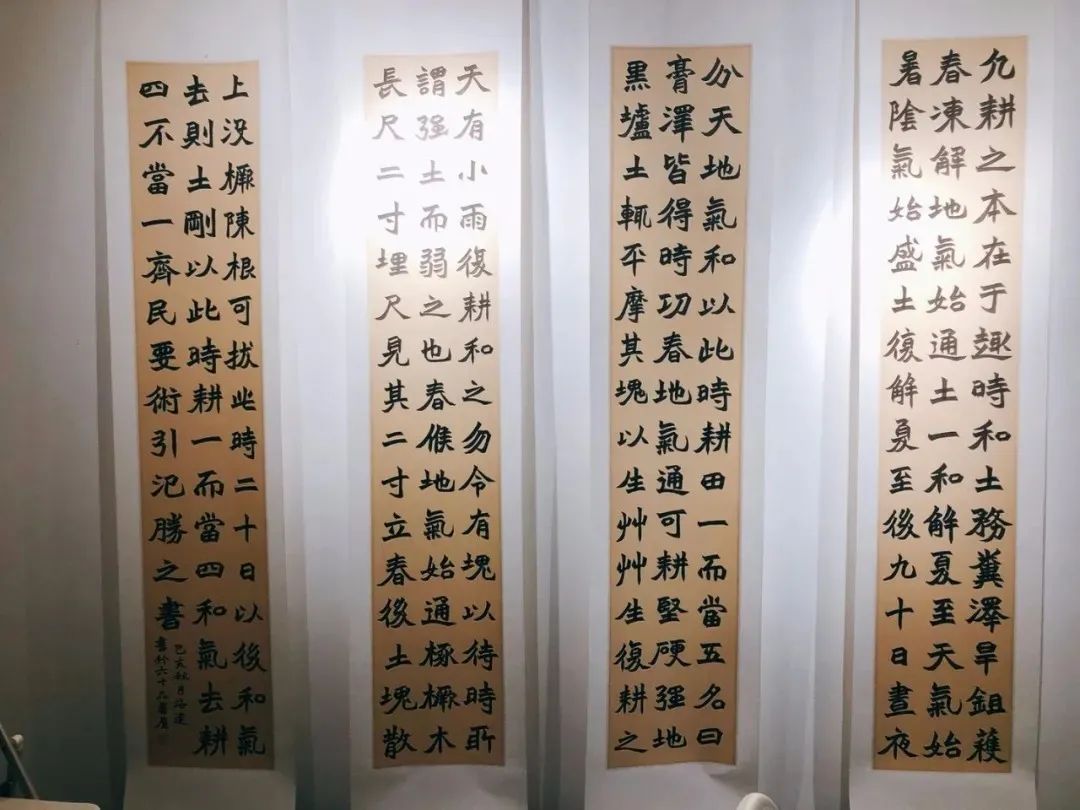 凡耕之本在于趣時和土務糞澤旱鉏穫
春凍解地氣始通土一和解夏至天氣始
暑陰氣始盛土復解夏至後九十日晝夜
分天地氣和以此時耕田一而當五名曰
膏澤皆得時功春地氣通可耕堅硬强地
黑壚土輒平摩其塊以生艸艸生復耕之
天有小雨復耕和之勿令有塊以待時所
謂强土而弱之也春候地氣始通椓橛木
長尺二寸埋尺見其二寸立春後土塊散
上没橛陳根可拔此時二十日以後和氣
去則土剛以此時耕一而當四和氣去耕
四不當一齊民要術引氾勝之書
己亥秋月
書於六十